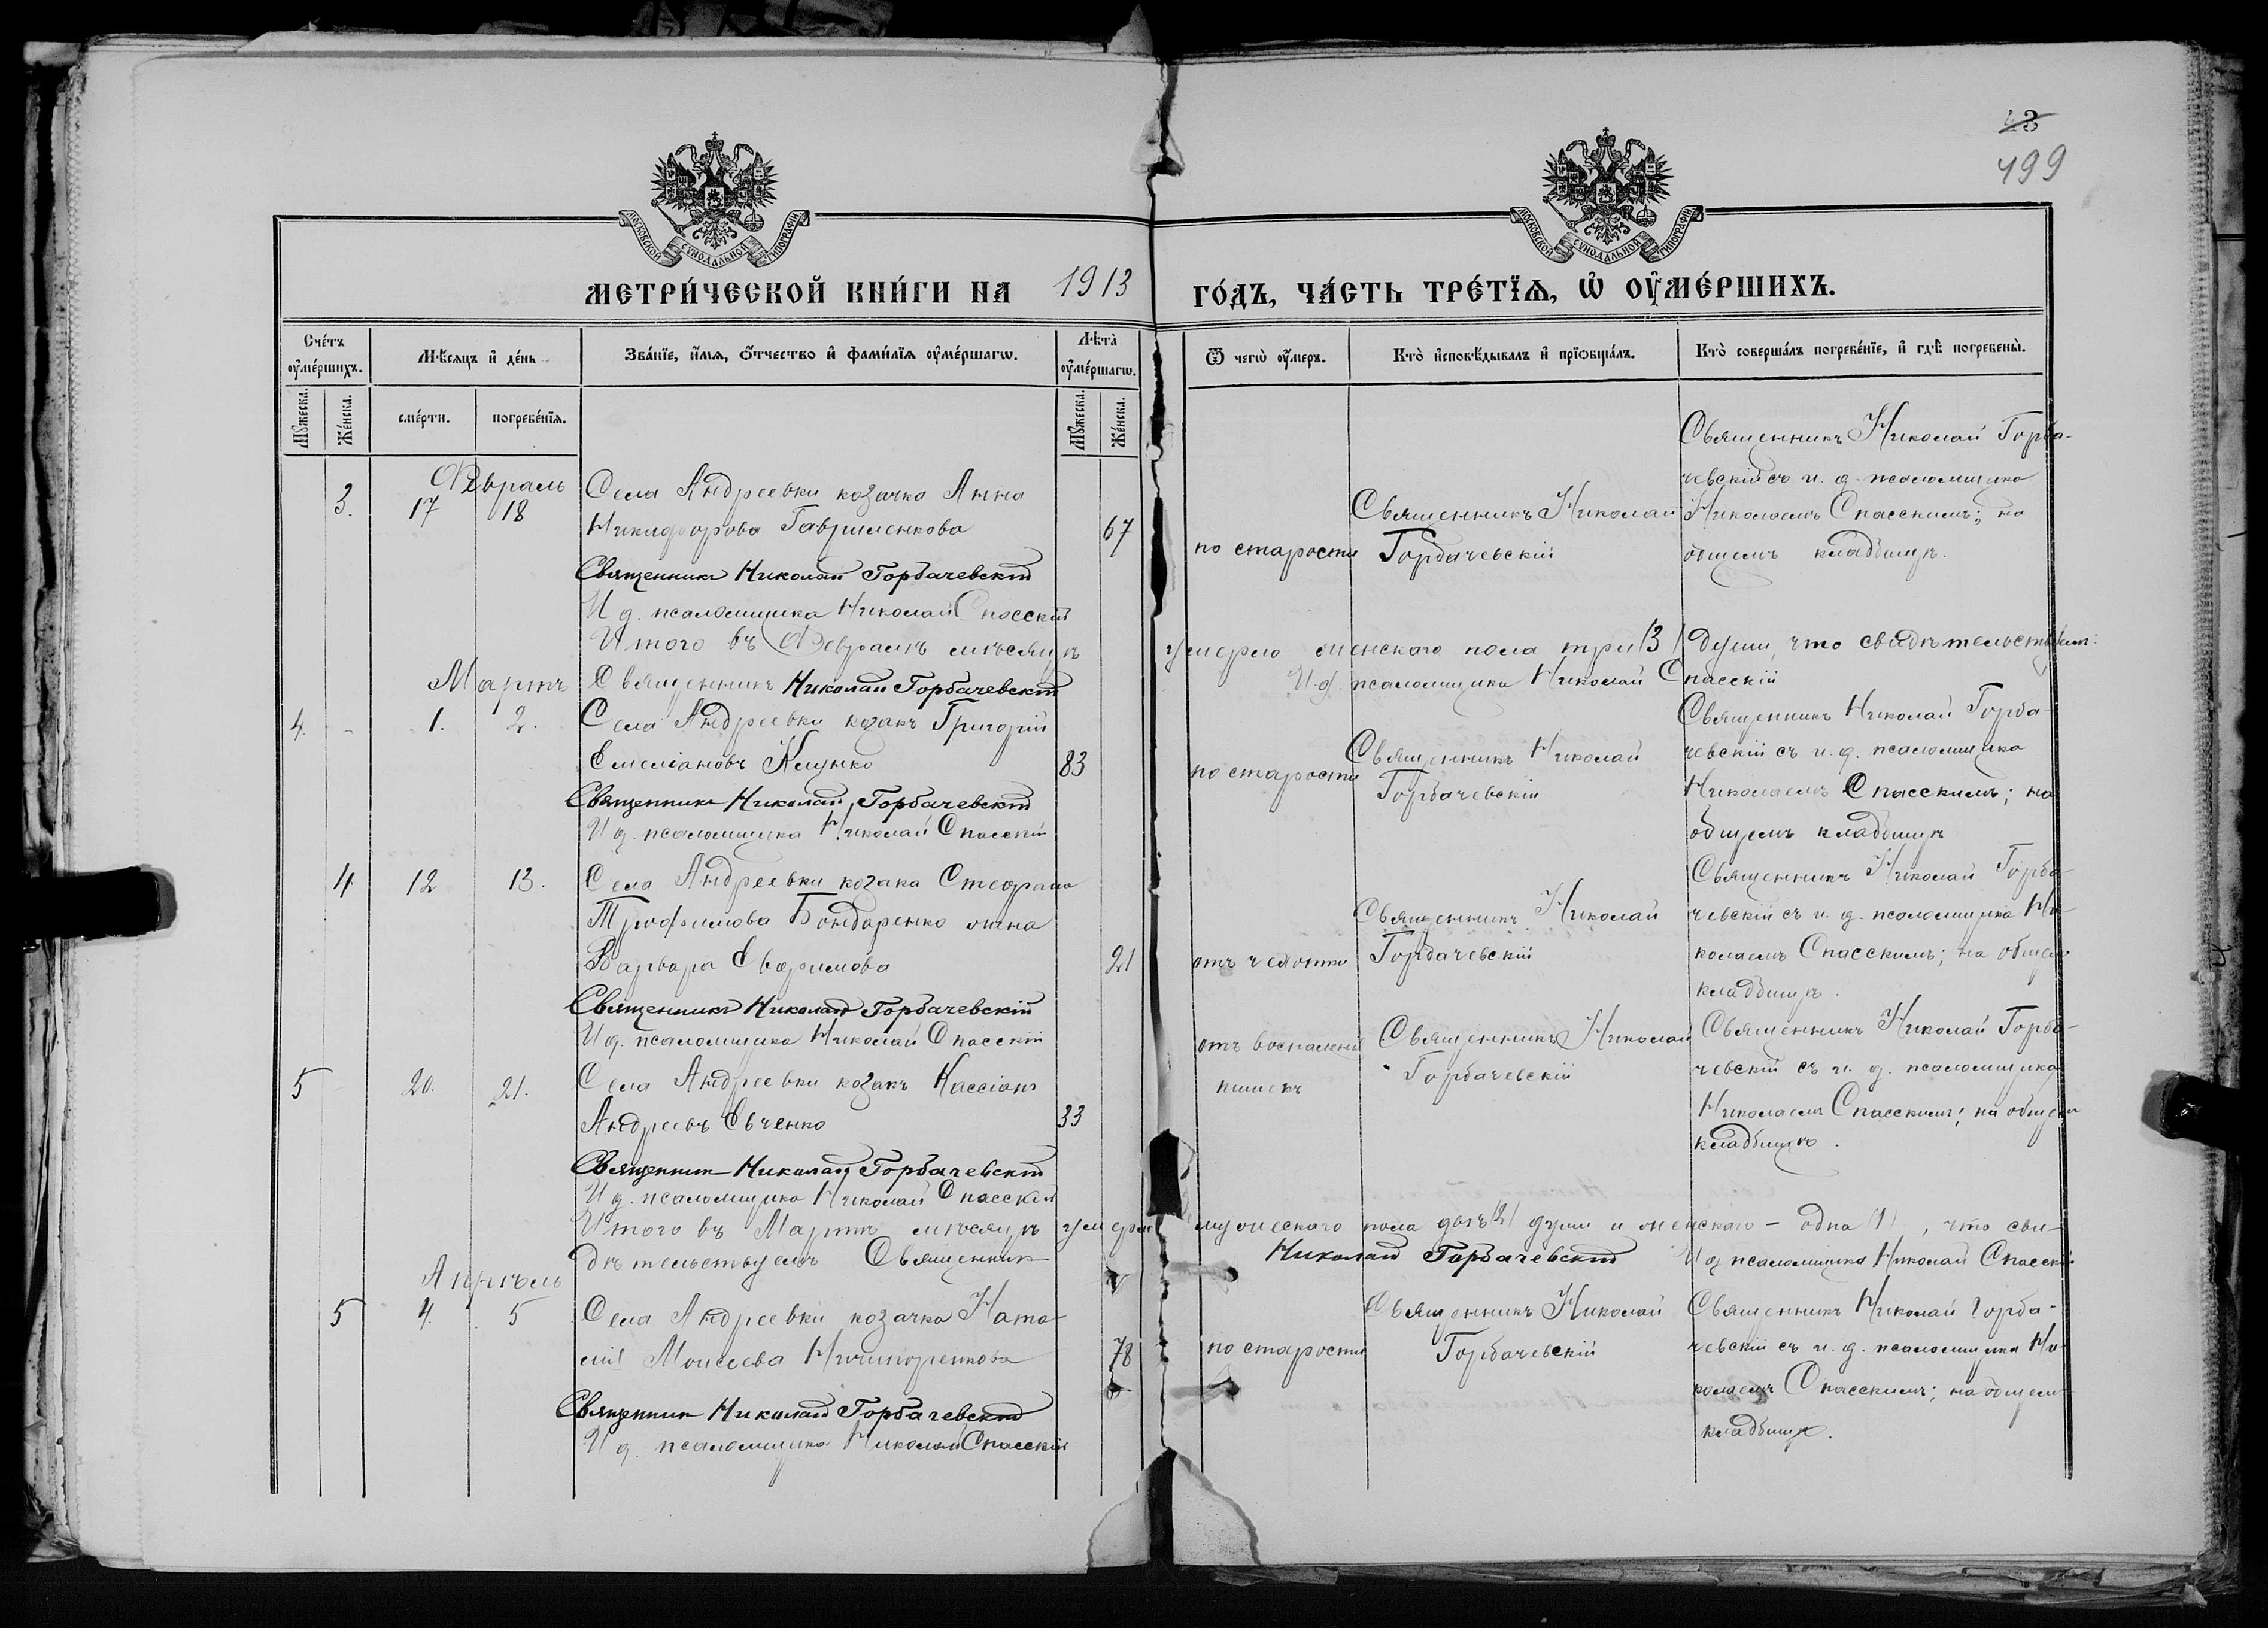 43
499
МОСКОВСКОЙ СѴНОДАЛЬНОЙ ТИПОГРАФІИ
МОСКОВСКОЙ СѴНОДАЛЬНОЙ ТИПОГРАФІИ
МЕТРИ́ЧЕСКОЙ КНИ́ГИ НА 1913 ГО́ДЪ, ЧА́СТЬ ТРЕ́ТЇѦ, Ѡ҆ ОУ҆МЕ́РШИХЪ.
Сче́тъ оу҆ме́ршихъ.
Мѣ́сяцъ и҆ де́нь
Зва́нїе, и҆́мѧ, ѻ҆́тчество и҆ фами́лїѧ оу҆ме́ршагѡ.
Лѣта̀ оу҆ме́ршагѡ.
Ѿ чегѡ̀ оу҆́меръ.
Кто̀ и҆сповѣ́дывалъ и҆ прїѻбща́лъ.
Кто̀ соверша́лъ погребе́нїе, и҆ гдѣ̀ погребены̀.
Мꙋ́жеска.
Же́нска.
сме́рти.
погребе́нїѧ.
Мꙋ́жеска.
Же́нска.
Февраль
3.
17
18
Села Андреевки козачка Анна
Никифорова Гавриленкова
67
по старости
Священникъ Николай
Горбачевскій
Священникъ Николай Горба-
чевскій съ и. д. псаломщика
Николаемъ Спасскимъ; на
общемъ кладбищѣ.
Священникъ Николай Горбачевскій
И д. псаломщика Николай Спасскій
Итого въ Февралѣ мѣсяцѣ умерло женскаго пола три (3) души, что свидѣтельствуемъ:
Священникъ Николай Горбачевскій И. д. псаломщика Николай Спасскій
Мартъ
4.
-
1.
2.
Села Андреевки козакъ Григорій
Емеліановъ Клунко
83
по старости
Священникъ Николай
Горбачевскій
Священникъ Николай Горба-
чевскій съ и. д. псаломщика
Николаемъ Спасскимъ; на
общемъ кладбищѣ
Священникъ Николай Горбачевскій
И д. псаломщика Николай Спасскій
4
12
13.
Села Андреевки козака Стефана
Трофимова Бондаренко жена
Варвара Евфимова
21
отъ чахотки
Священникъ Николай
Горбачевскій
Священникъ Николай Горба-
чевскій съ и. д. псаломщика Ни-
колаемъ Спасскимъ; на общем
кладбищѣ.
Священникъ Николай Горбачевскій
И д. псаломщика Николай Спасскій
5
20.
21.
Села Андреевки козакъ Кассіанъ
Андреевъ Евченко
33
отъ воспаленія
кишекъ
Священникъ Николай
Горбачевскій
Священникъ Николай Горба-
чевскій съ и. д. псаломщика
Николаемъ Спасскимъ; на общем
кладбищѣ.
Священникъ Николай Горбачевскій
И д. псаломщика Николай Спасскій
Итого въ Мартѣ мѣсяцѣ умерло мужескаго пола двѣ (2) души и женскаго - одна (1), что сви-
дѣтельствуемъ Священникъ Николай Горбачевскій И д псаломщика Николай Спасскій
Апрѣль
5
4.
5
Села Андреевки козачка Ната-
лія Моисеева Ничипоренкова
78
по старости
Священникъ Николай
Горбачевскій
Священникъ Николай Горба-
чевскій съ и. д. псаломщика Ни-
колаемъ Спасскимъ; на общем
кладбищѣ.
Священникъ Николай Горбачевскій
И д. псаломщика Николай Спасскій